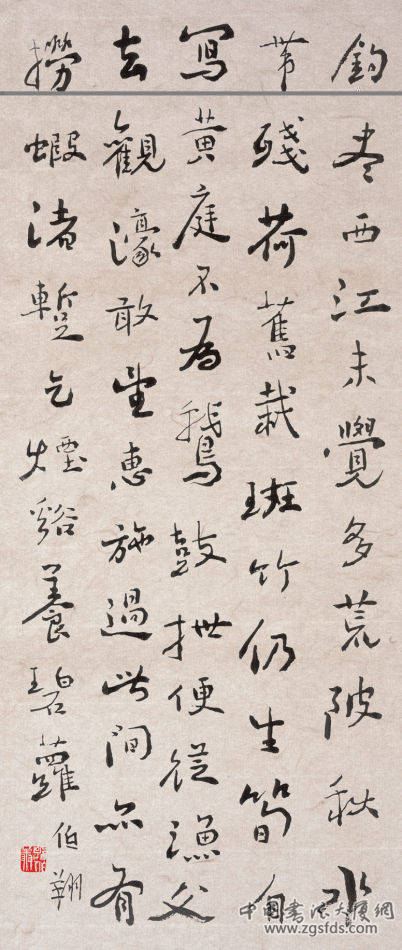 釣盡西江未覺多荒陂秋水
帶殘荷舊栽班竹仍生筍自
寫黃庭不為鵝鼓枻便從漁父
去觀濠敢望惠施過此間亦有
撈蝦渚蹔乞煙谿養碧蘿
伯翔
中國書法大厦網
www.zgsfds.com